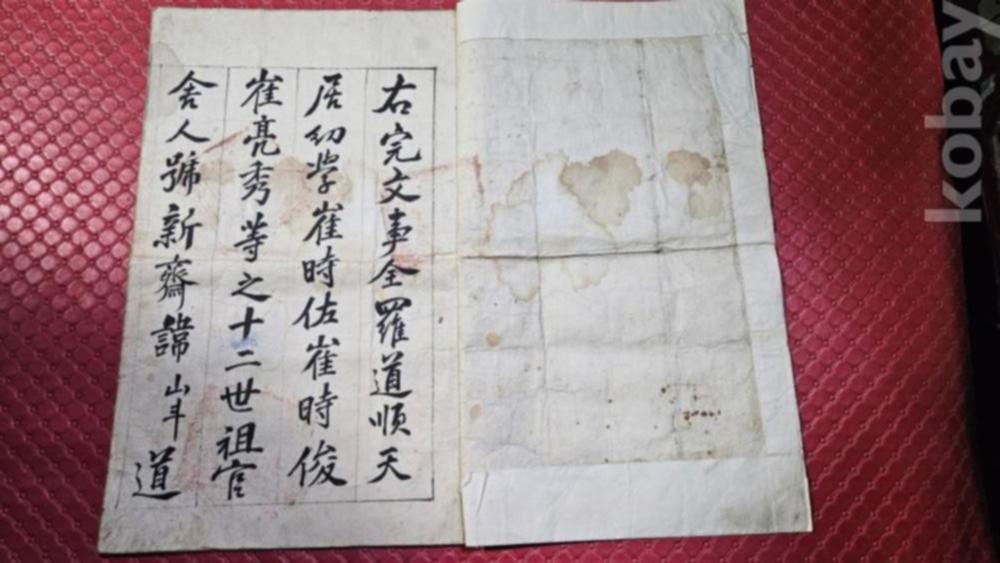 右完文事全羅道順天
居幼學崔時佐崔時俊
崔亮秀等之十二世祖官
舍人號新齋諱山斗道
kobay